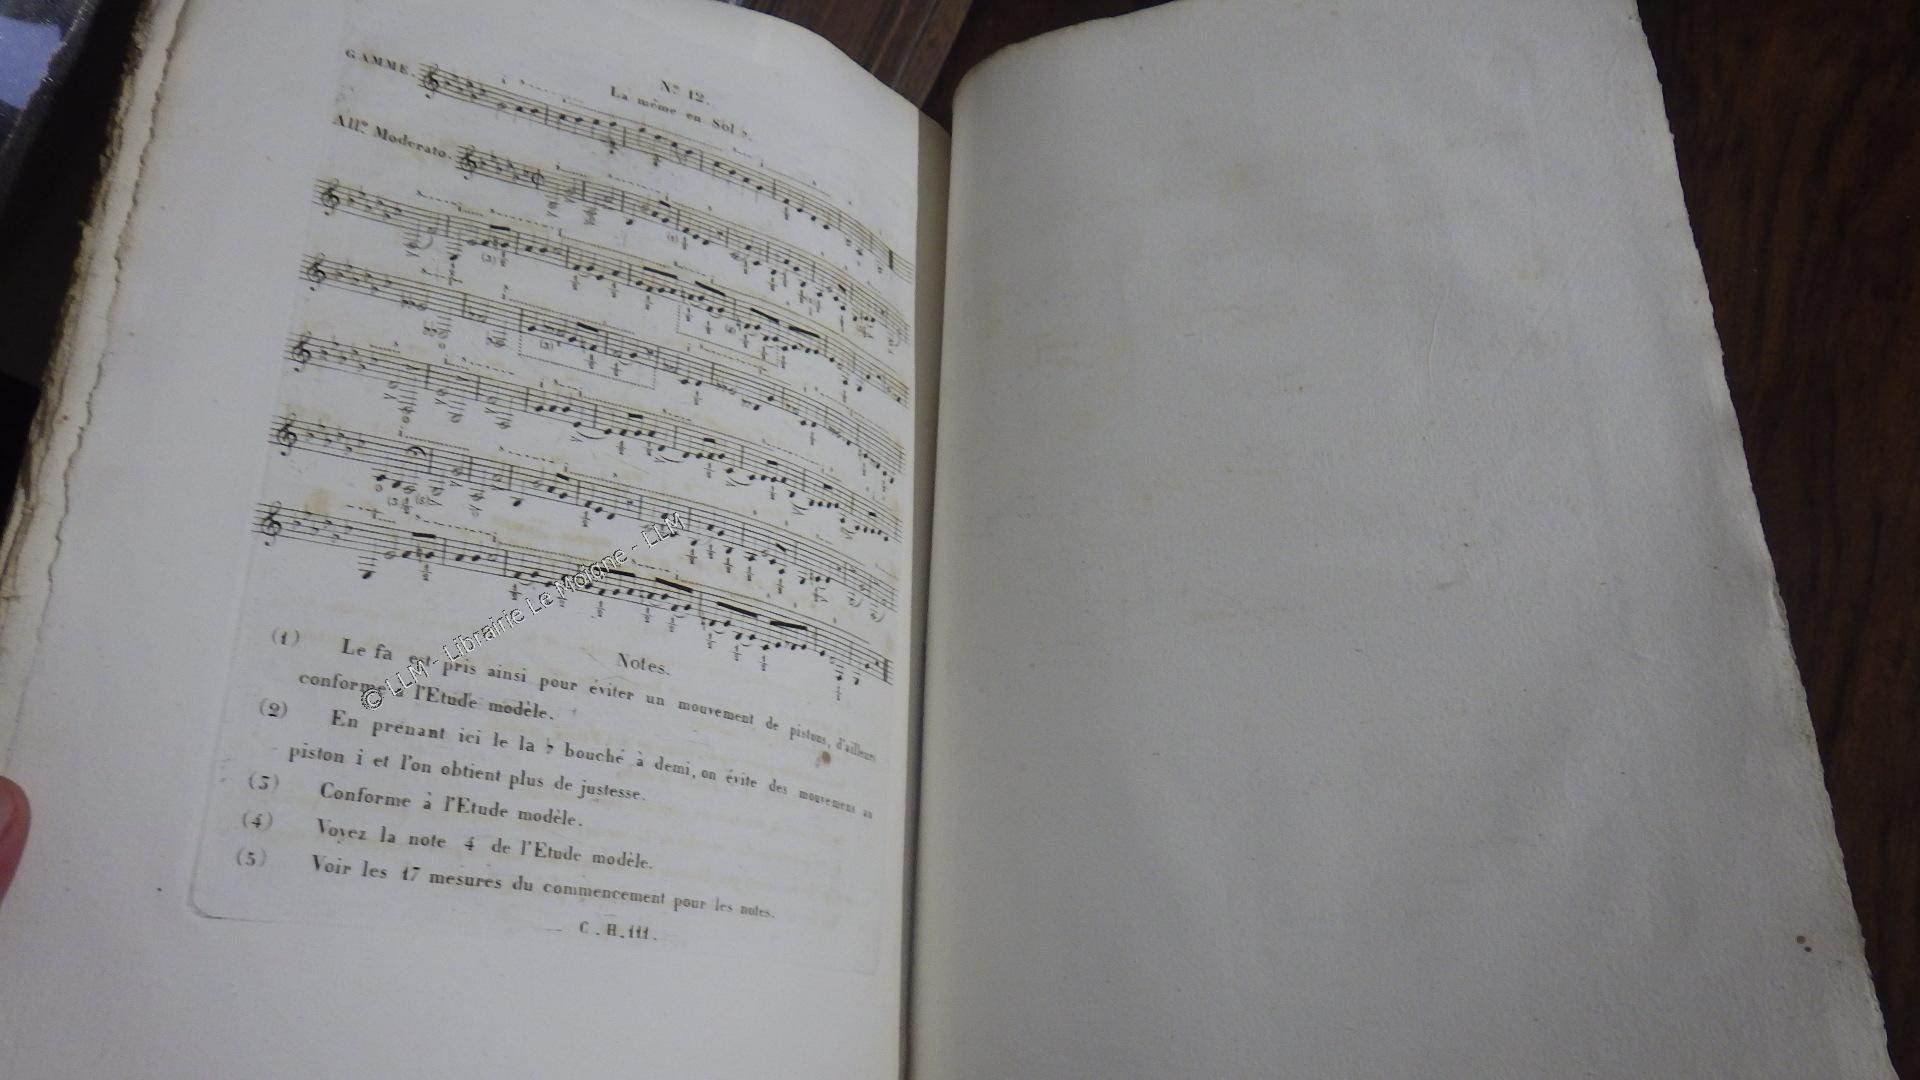 N.º 12.
La même en Sol ♭.
GAMME.
All.º Moderato.
Notes.
(1) Le fa est pris ainsi pour éviter un mouvement de pistons, d'ailleurs
conforme à l'Etude modèle.
(2) En prenant ici le la ♭ bouché à demi, on évite des mouvemens au
piston i et l'on obtient plus de justesse.
(3) Conforme à l'Etude modèle.
(4) Voyez la note 4 de l'Etude modèle.
(5) Voir les 17 mesures du commencement pour les notes.
C.H.111.
© LLM - Librairie Le Moigne - LLM